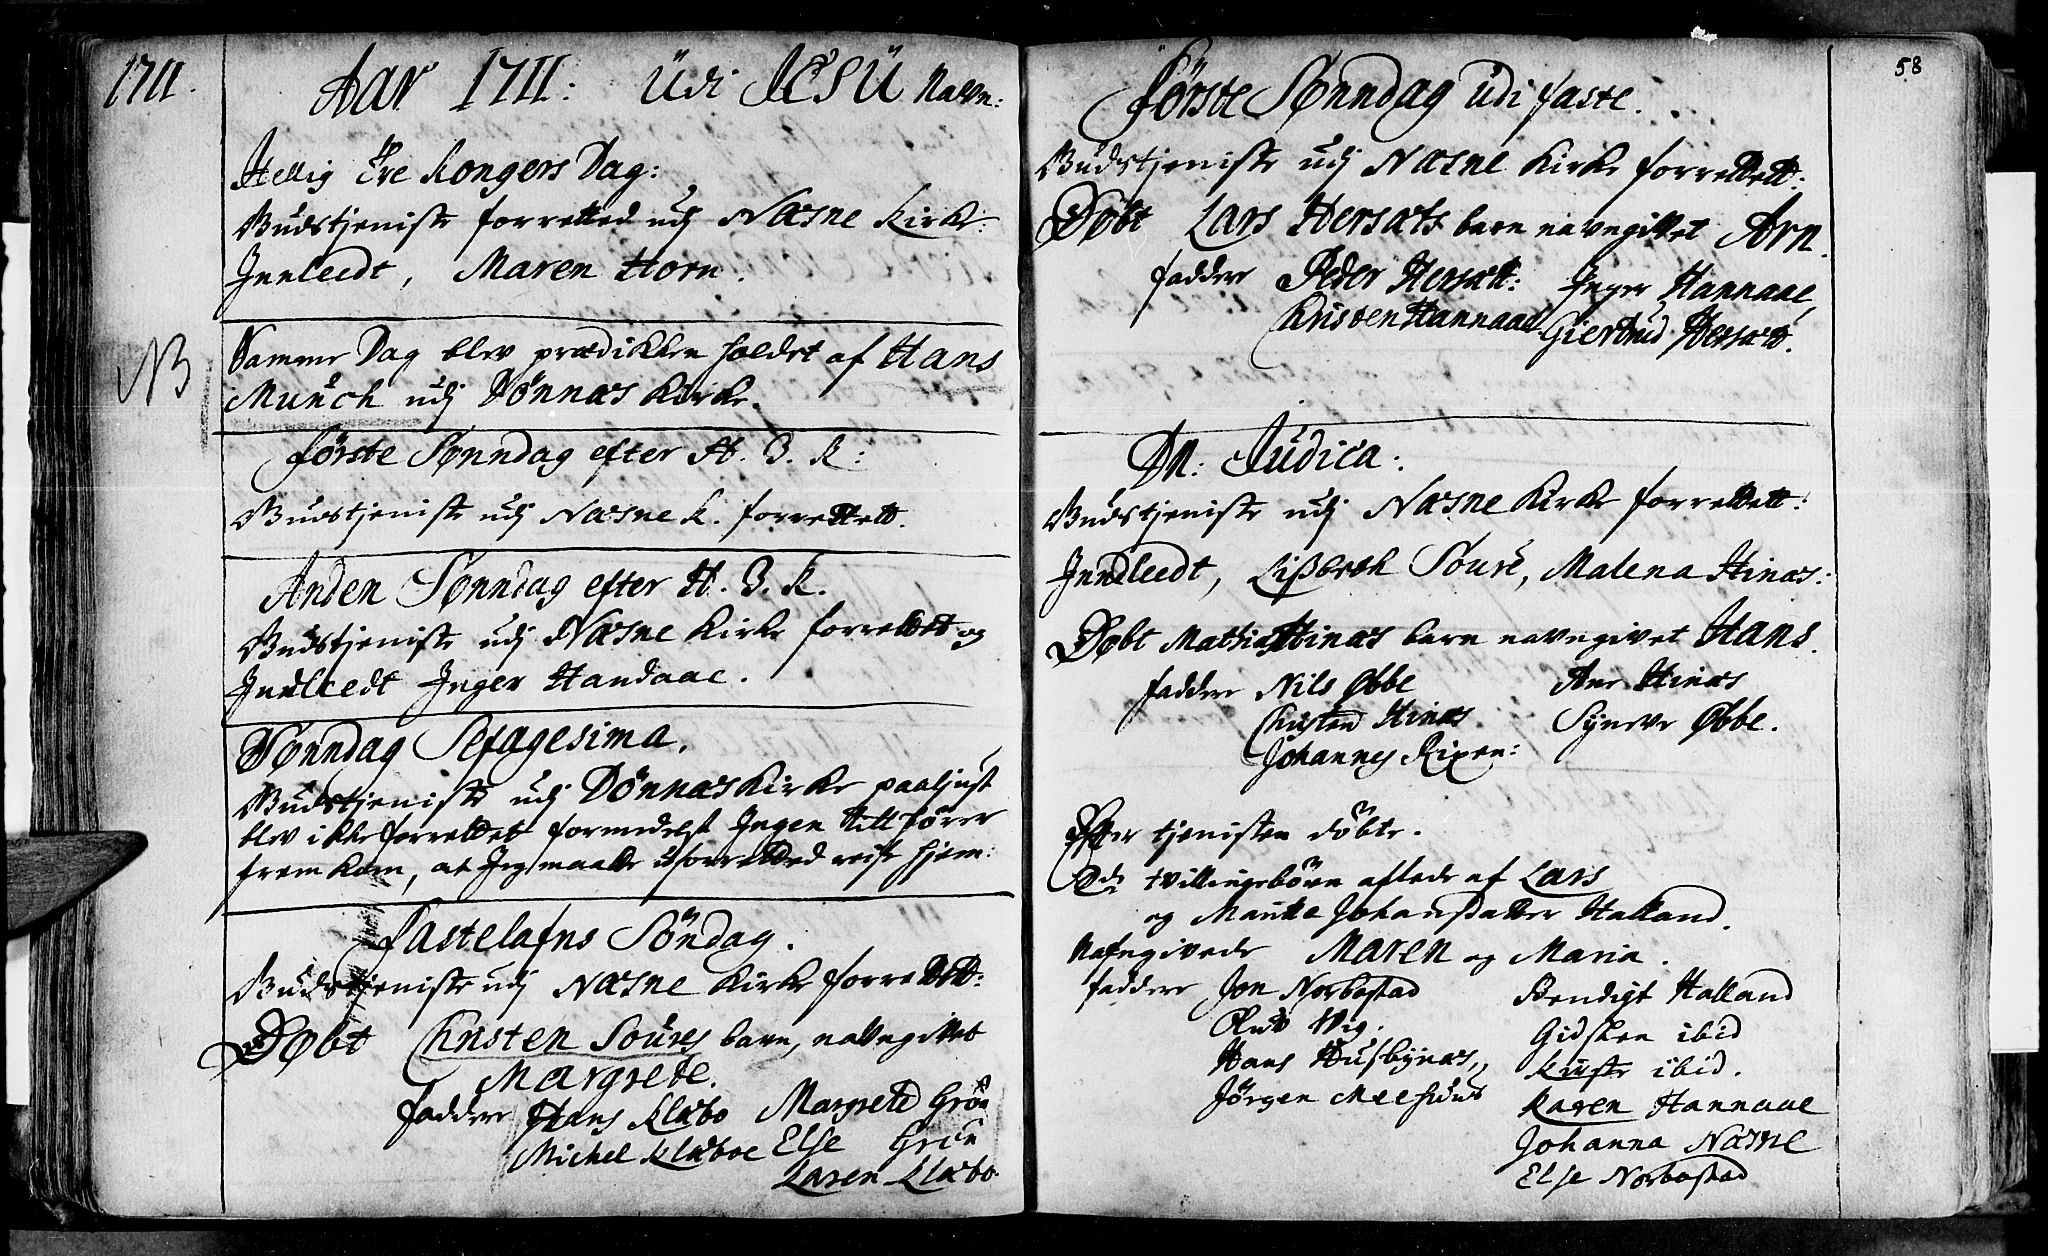 1711.
Aar 1711: Üdi JESÜ Navn:
Hellig Tre Kongers Dag:
Gudstieniste forretted udj Næsne Kirke:
Innleedt, Maren Horn.
NB
Samme Dag blev prædikken holdet af Hans
Munch udj Dönnæs Kirke.
Förste Sønndag efter H. 3. K:
Gudstjeniste udj Næsne K. forrettett.
Anden Sønndag efter H. 3. K.
Gudstjeniste udj Næsne Kirke forrettet og
Indleedt Inger Handaae.
Sønndag Sexagesima.
Gudstjeniste udj Dönnæs Kirke paaljust
blev ikke forrettet formedelst Ingen Tillhörer
frem kom, at Jeg maatte uforretted reise hjem:
Fastelafns Söndag.
Gudstjeniste udj Næsne Kirke forrettett:
Døbt Christen Soures barn, navngivet
Margrete.
faddere Hans Klæbo Margrete Grön
Michel Klæboe Else Grön
Karen Klæbo
58
Förste Sønndag udi faste.
Gudstjeniste udj Næsne Kirke forrettett:
Døbt Lars Hersæts barn navngivet Arn.
faddere Peder Hersætt: Inger Hannaae,
Christen Hannaae Giertrud Hersætt.
Dn: Judica:
Gudstjeniste udj Næsne Kirke forrettett:
Inndleedt, Lißbeth Soure, Malena Hinæs:
Døbt Mathias Hinæs barn navngivet Hans.
faddere Nils Øbbe Ane Hinæs
Christen Hinæs Synøve Øbbe.
Johannes Rixen:
Efter tjenisten döbte.
2de tvillingebörn aflede af Lars
og Maritte Johansdatter Halland.
Nafngivede Maren og Maria.
faddere Jon Norbostad Bendigt Halland
Oluv Vig. Gidsken ibid
Hans Husbynæs, Kirste ibid.
Jörgen Meehuus Karen Hannaae
Johanna Næsne
Else Norbostad